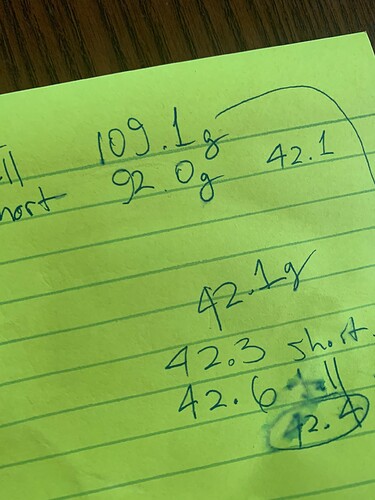 ll 109.1g
hort 92.0g 42.1
42.1g
42.3 short
42.6 tall
42.4